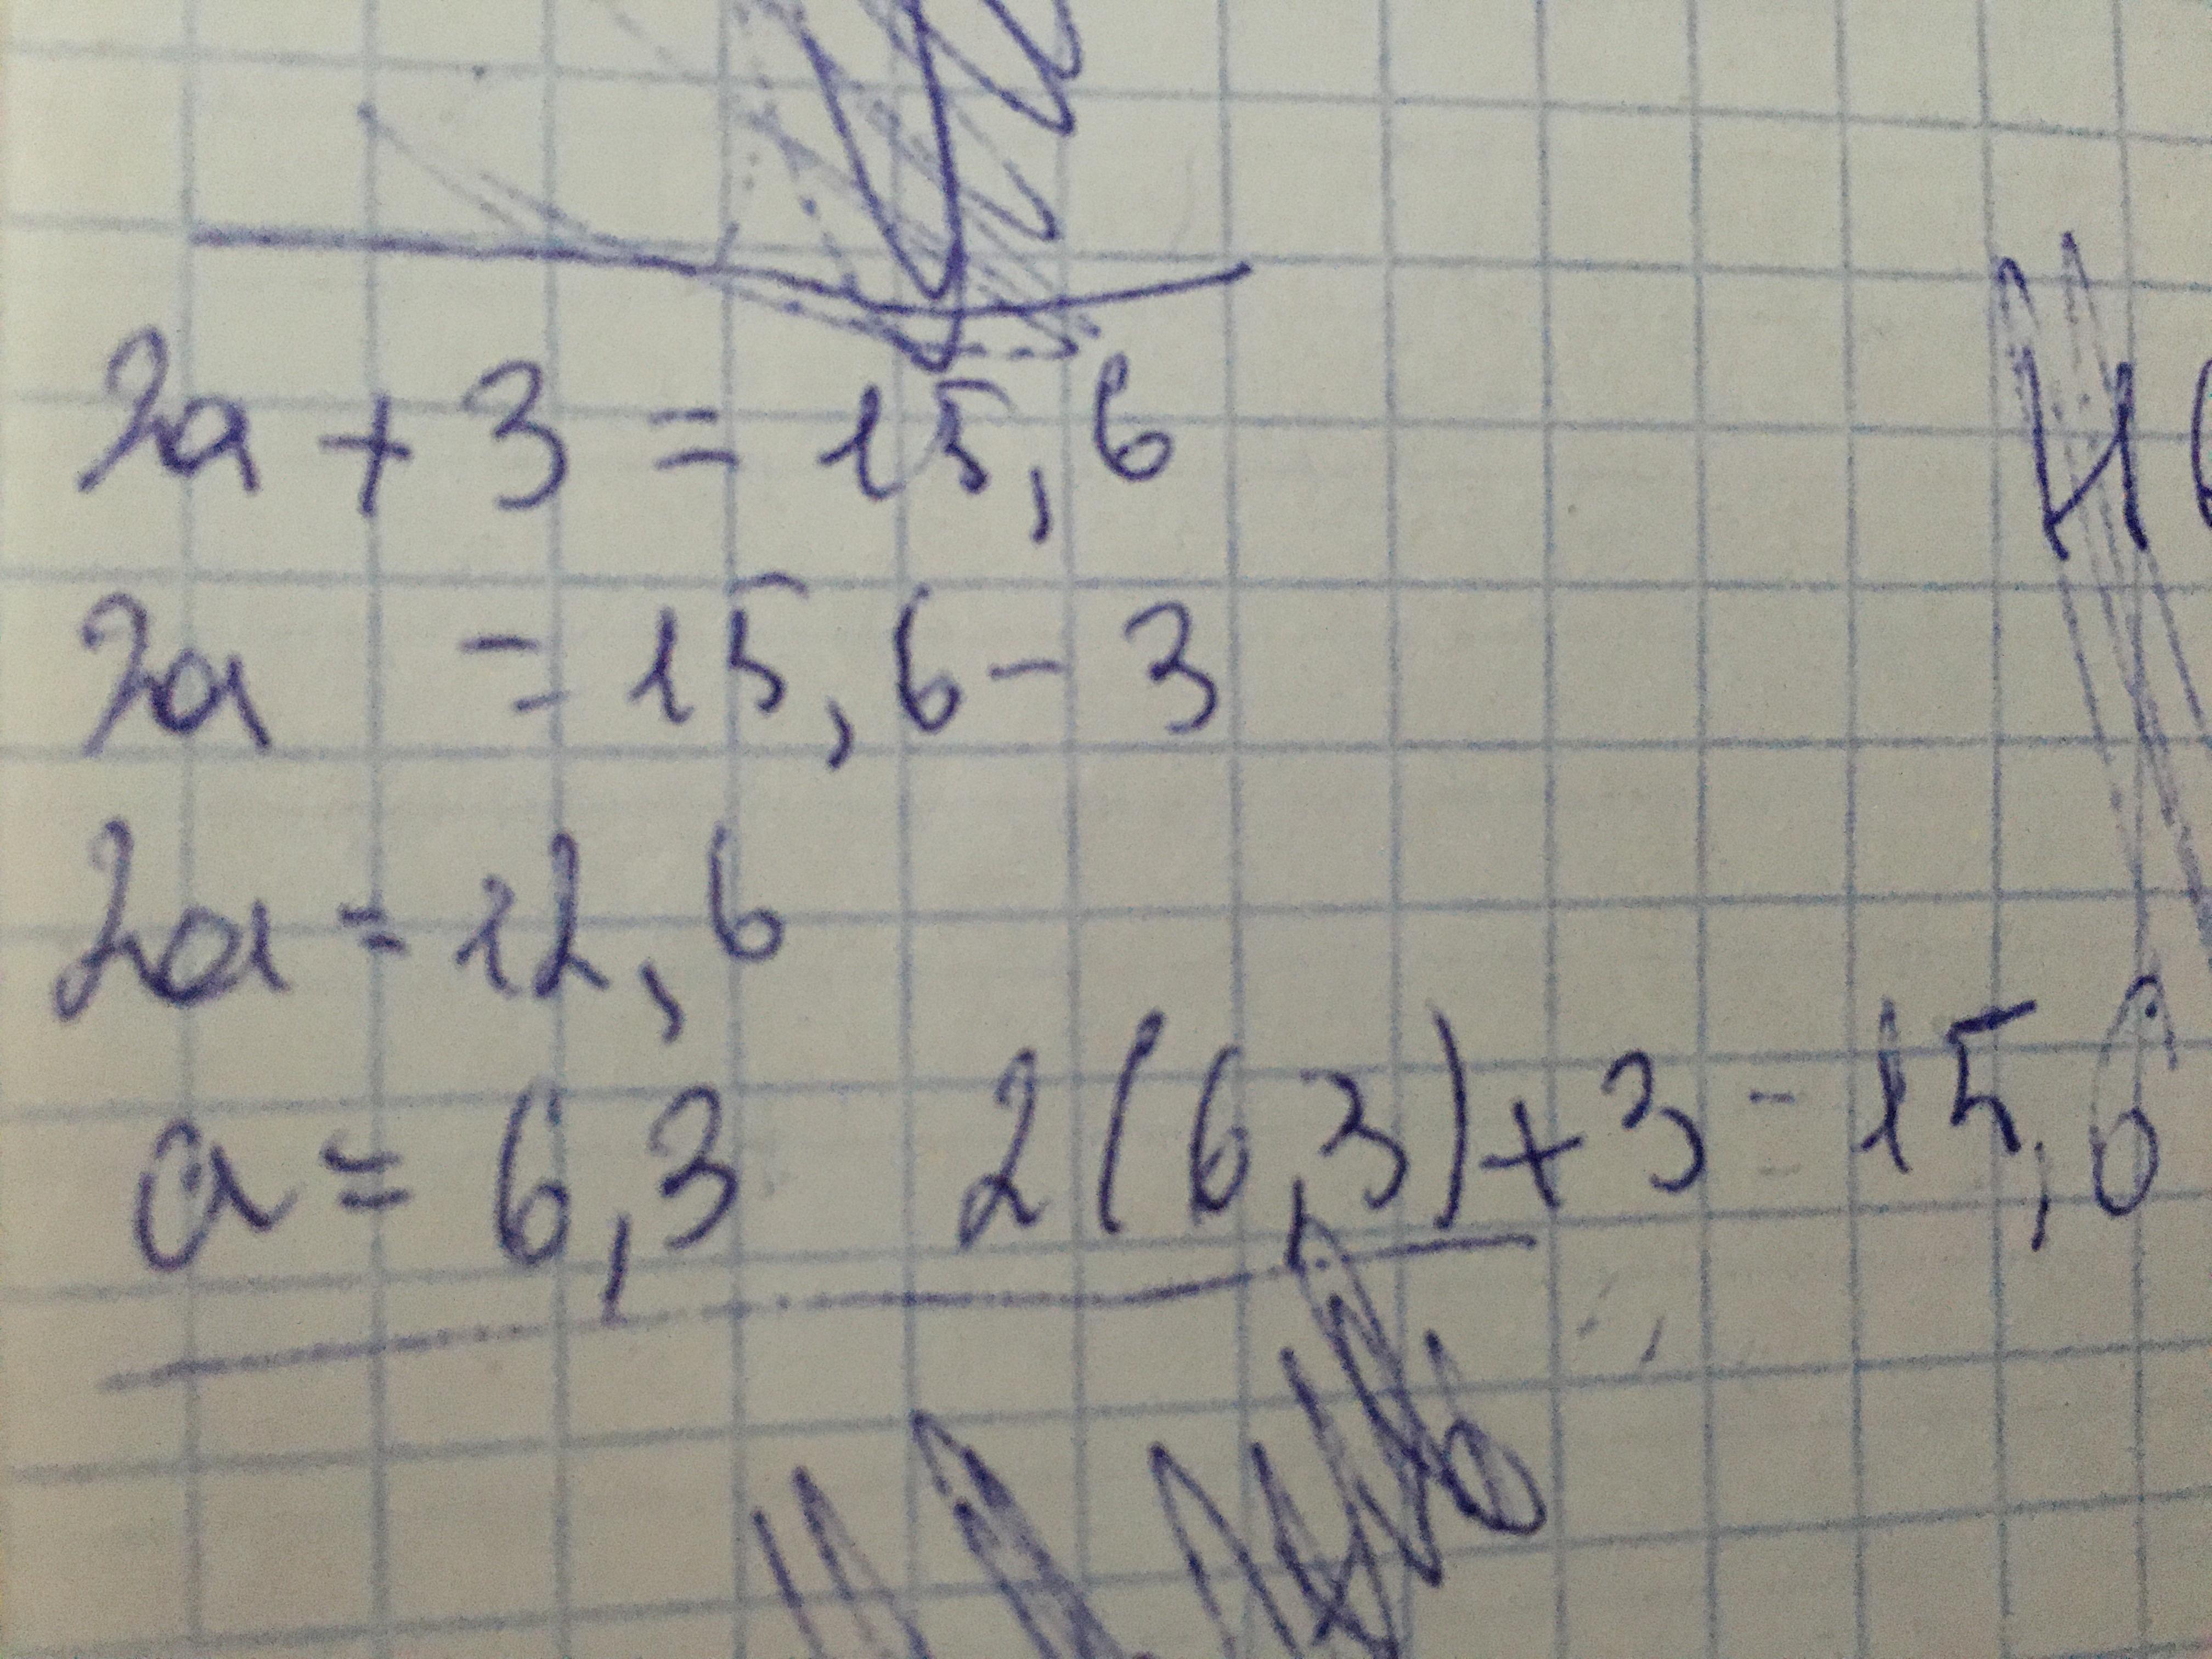 2a + 3 = 15,6
2a = 15,6 - 3
2a = 12,6
a = 6,3 2(6,3)+3 = 15,6